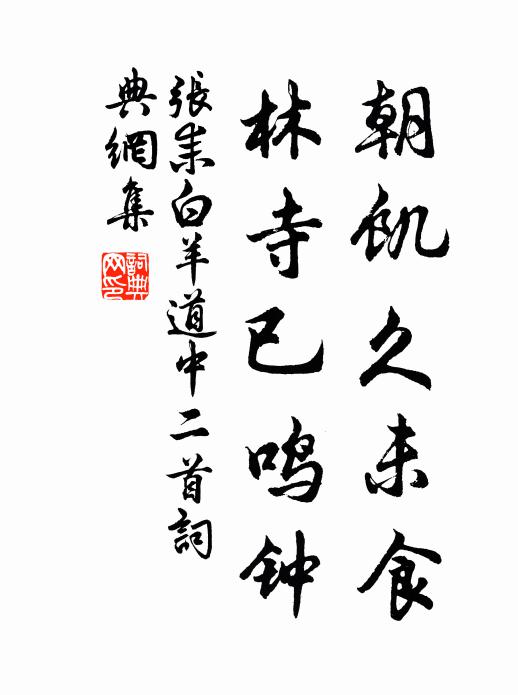 朝飢久未食
林寺已鸣钟
張耒白羊道中二首詞
典網集
詞典
网印